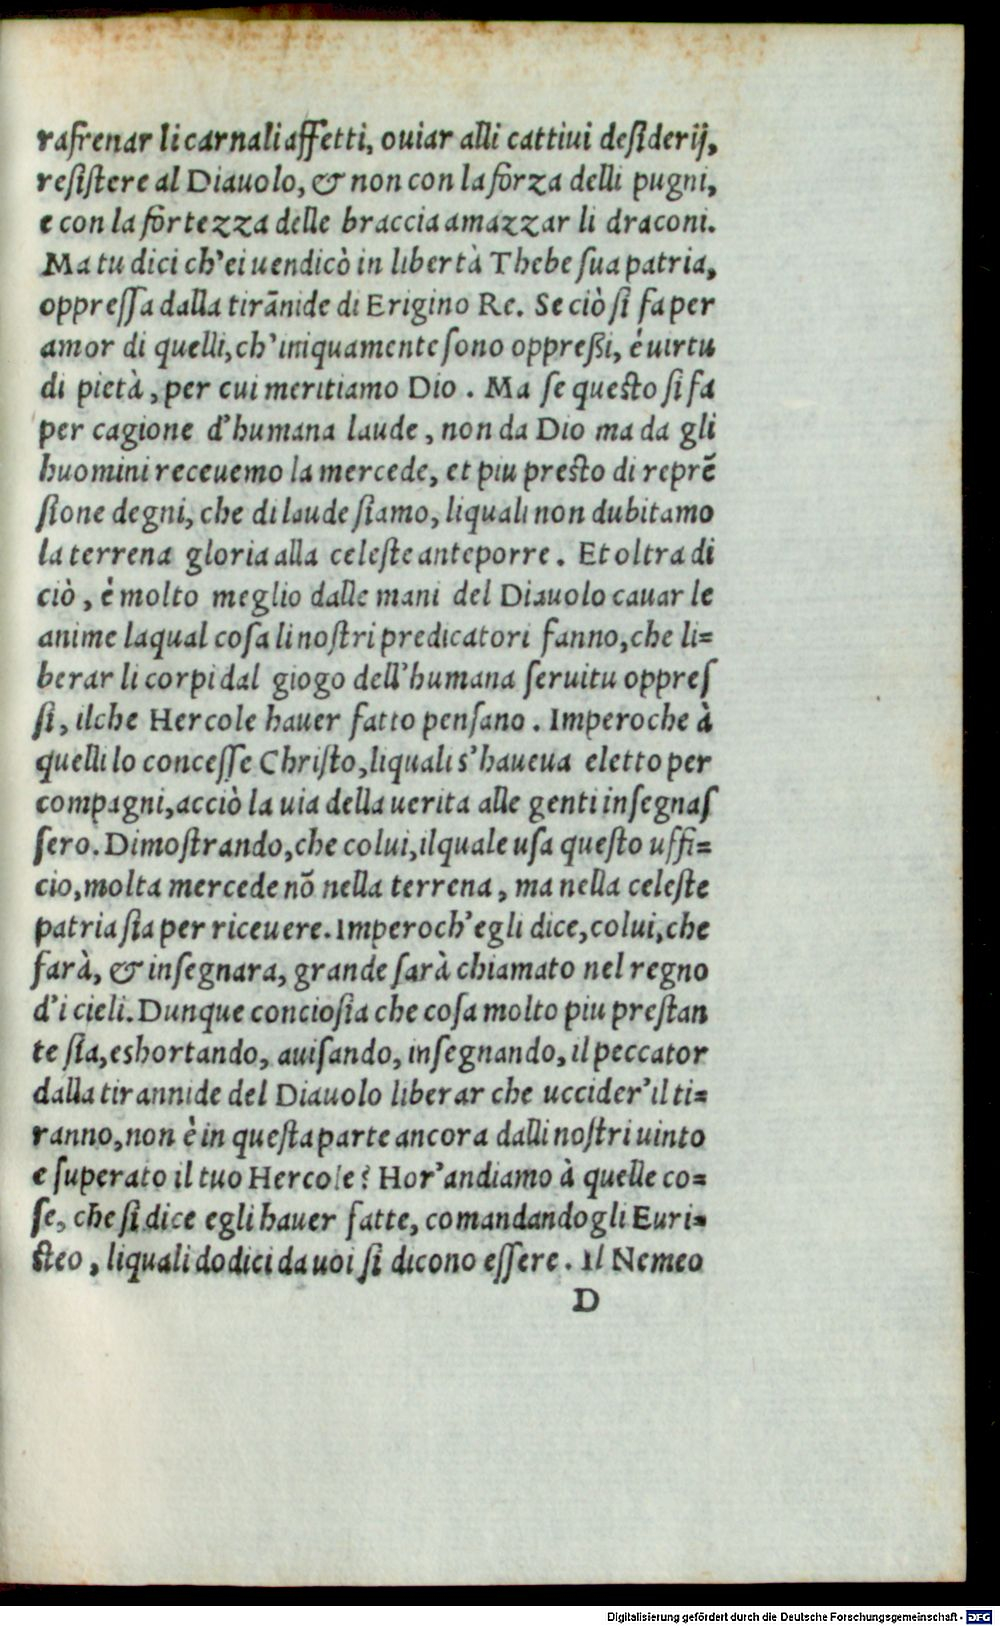 rafrenar li carnali affetti, ouiar alli cattiui desiderij,
resistere al Diauolo, & non con la forza delli pugni,
e con la fortezza delle braccia amazzar li draconi.
Ma tu dici ch'ei uendicò in libertà Thebe sua patria,
oppressa dalla tirãnide di Erigino Re. Se ciò si fa per
amor di quelli, ch'iniquamente sono oppreßi, è uirtu
di pietà, per cui meritiamo Dio. Ma se questo si fa
per cagione d'humana laude, non da Dio ma da gli
huomini receuemo la mercede, et piu presto di reprẽ
sione degni, che di laude siamo, liquali non dubitamo
la terrena gloria alla celeste anteporre. Et oltra di
ciò, è molto meglio dalle mani del Diauolo cauar le
anime laqual cosa li nostri predicatori fanno, che li=
berar li corpi dal giogo dell'humana seruitu oppres
si, ilche Hercole hauer fatto pensano. Imperoche à
quelli lo concesse Christo, liquali s'haueua eletto per
compagni, acciò la uia della uerita alle genti insegnas
sero. Dimostrando, che colui, ilquale usa questo uffi=
cio, molta mercede nõ nella terrena, ma nella celeste
patria sia per riceuere. Imperoch'egli dice, colui, che
farà, & insegnara, grande sarà chiamato nel regno
d'i cieli. Dunque conciosia che cosa molto piu prestan
te sia, eshortando, auisando, insegnando, il peccator
dalla tirannide del Diauolo liberar che uccider'il ti=
ranno, non è in questa parte ancora dalli nostri uinto
e superato il tuo Hercole? Hor'andiamo à quelle co=
se, che si dice egli hauer fatte, comandandogli Euri=
steo, liquali dodici da uoi si dicono essere. Il Nemeo
D
Digitalisierung gefördert durch die Deutsche Forschungsgemeinschaft - DFG